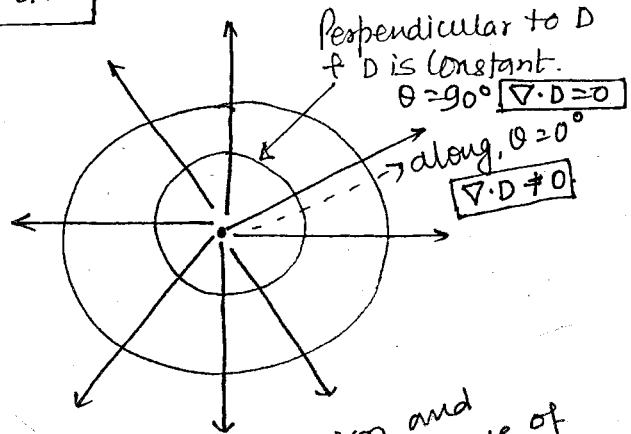 Perpendicular to D
& D is constant.
θ = 90° ∇·D = 0
along, θ = 0°
∇·D ≠ 0
and
of